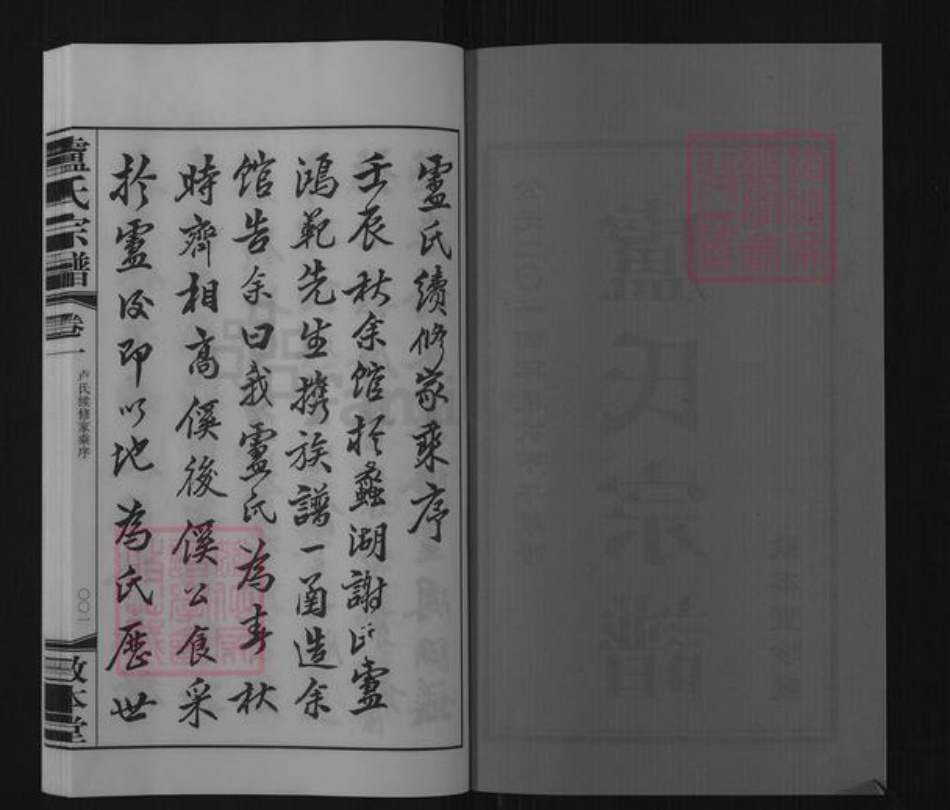 盧氏續修家乘序
壬辰秋余馆於蠡湖謝氏盧
鴻範先生携族譜一函造余
馆告余曰我盧氏為春秋
時齊相高傒後傒公食采
於盧後即以地為氏歷世
盧氏宗譜
卷一
卢氏续修家乘序
〇〇一
敦本堂
盧氏宗譜